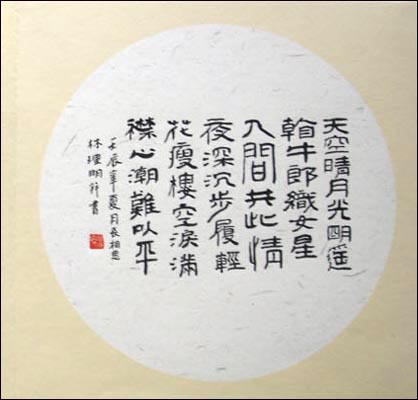 天空晴月光明遥
看牛郎織女星
人間共此情
夜深沉步履輕
花瘦樓空淚滿
襟心潮難以平
壬辰年夏月長相思
林理明書